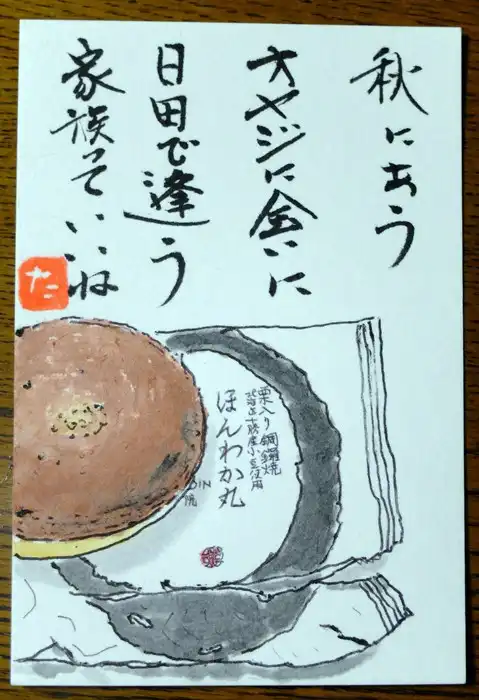 秋にあう
オヤジに会いに
日田で逢う
家族っていいね
た
栗入り銅鑼焼
北海道十勝産小豆使用
ほんわか丸
OIN
院